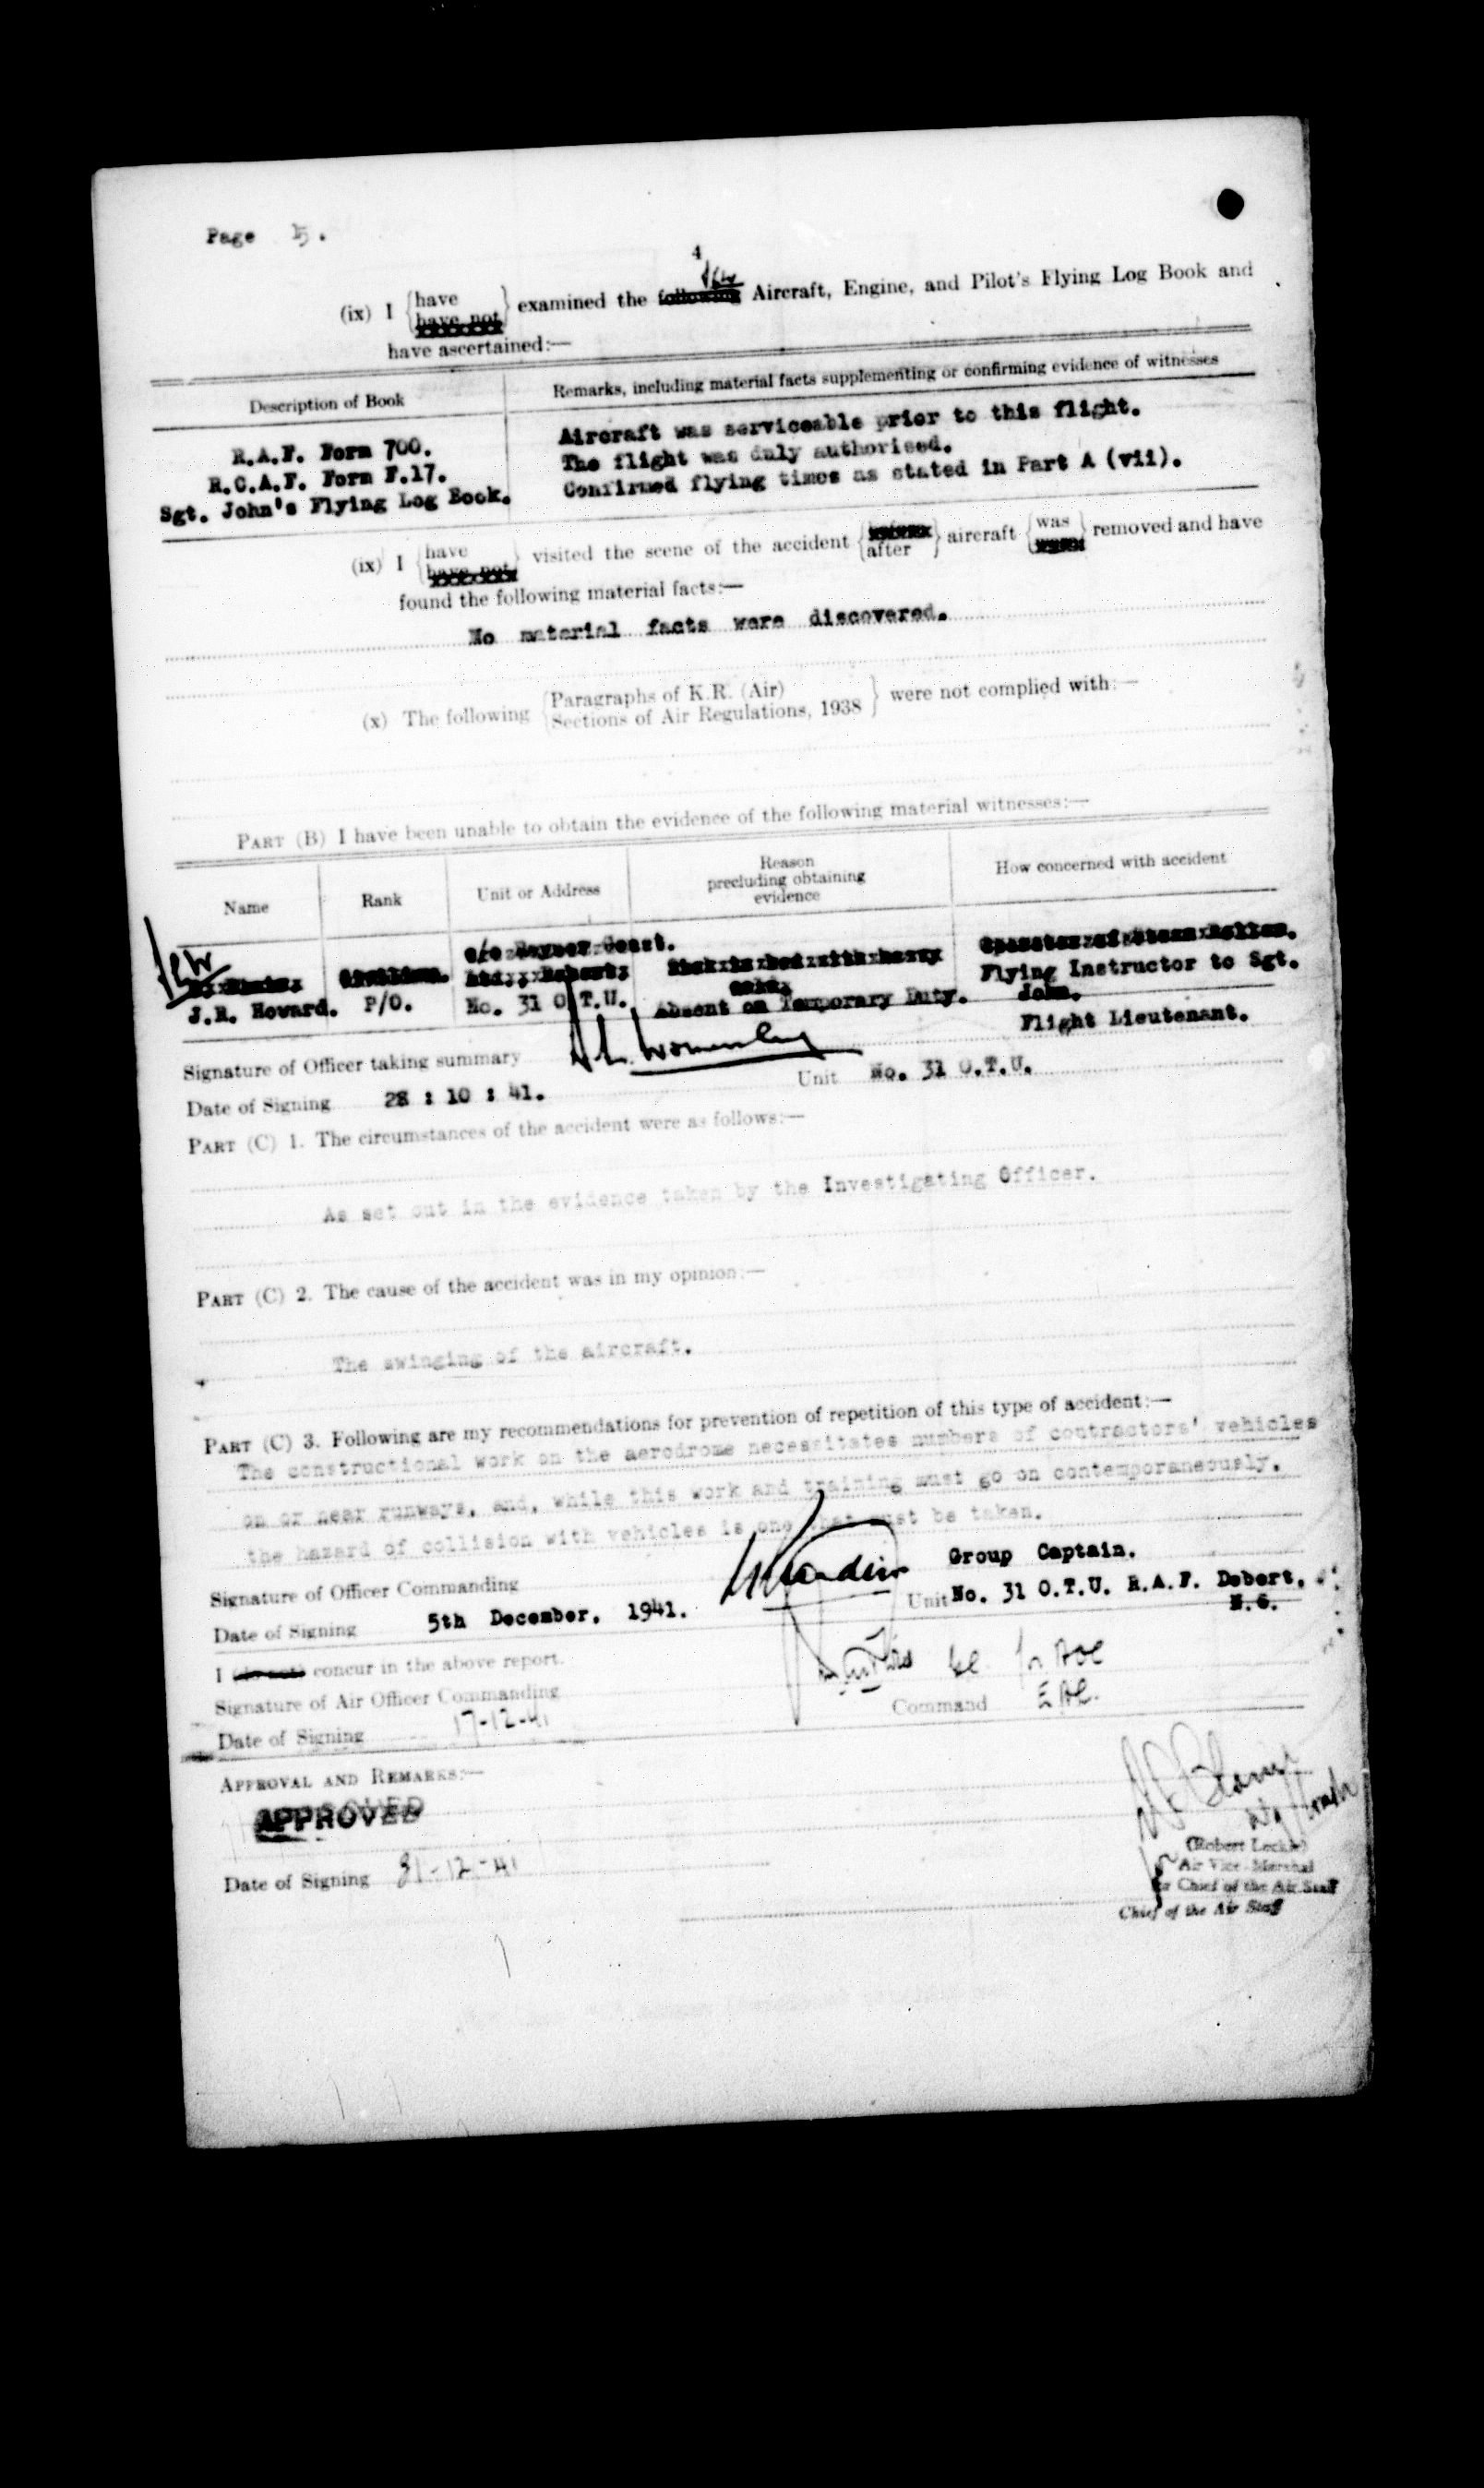 Page 5.
4
(ix) I {have / have not} examined the following Aircraft, Engine, and Pilot's Flying Log Book and
have ascertained:—
Description of Book Remarks, including material facts supplementing or confirming evidence of witnesses
R.A.F. Form 700. Aircraft was serviceable prior to this flight.
R.C.A.F. Form F.17. The flight was duly authorised.
Sgt. John's Flying Log Book. Confirmed flying times as stated in Part A (vii).
(ix) I {have / have not} visited the scene of the accident {after} aircraft {was} removed and have
found the following material facts:—
No material facts were discovered.
(x) The following {Paragraphs of K.R. (Air) / Sections of Air Regulations, 1938} were not complied with:—
PART (B) I have been unable to obtain the evidence of the following material witnesses:—
Name Rank Unit or Address Reason precluding obtaining evidence How concerned with accident
J.R. Howard. P/O. No. 31 O.T.U. Absent on Temporary Duty. Flying Instructor to Sgt. John.
Signature of Officer taking summary Flight Lieutenant.
Date of Signing 28 : 10 : 41. Unit No. 31 O.T.U.
PART (C) 1. The circumstances of the accident were as follows:—
As set out in the evidence taken by the Investigating Officer.
PART (C) 2. The cause of the accident was in my opinion:—
The swinging of the aircraft.
PART (C) 3. Following are my recommendations for prevention of repetition of this type of accident:—
The constructional work on the aerodrome necessitates numbers of contractors' vehicles
on or near runways, and, while this work and training must go on contemporaneously,
the hazard of collision with vehicles is one that must be taken.
Signature of Officer Commanding Group Captain.
Date of Signing 5th December, 1941. Unit No. 31 O.T.U. R.A.F. Debert,
N.S.
I (do not) concur in the above report.
Signature of Air Officer Commanding for AOC
Date of Signing 17-12-41 Command EAC.
APPROVAL AND REMARKS:—
APPROVED
(Robert Leckie)
Air Vice-Marshal
for Chief of the Air Staff
Date of Signing 31-12-41
Chief of the Air Staff